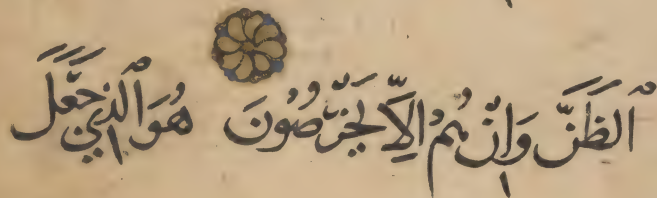 ٱلظَّنَّ وَاِنْ هُمْ اِلَّا يَخْرُصُونَ هُوَ ٱلَّذِي جَعَلَ